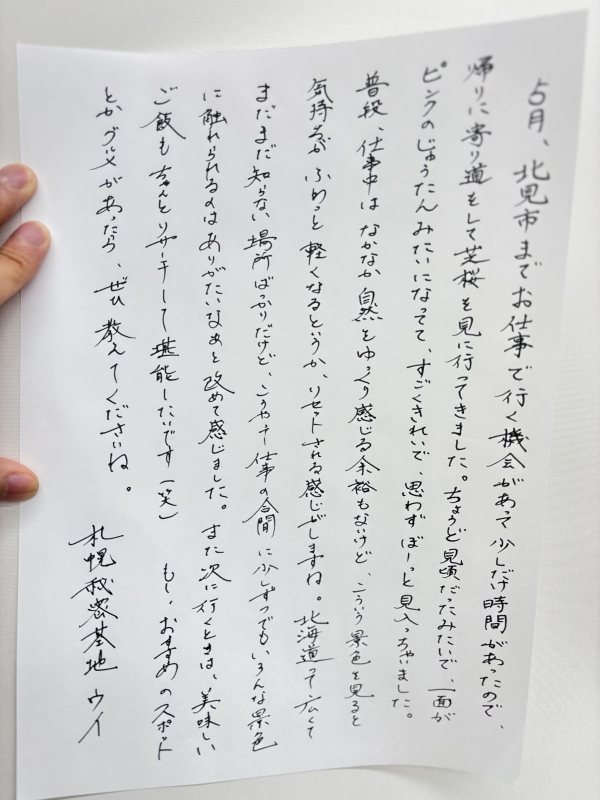 5月、北見市までお仕事で行く機会があって少しだけ時間があったので、
帰りに寄り道をして芝桜を見に行ってきました。ちょうど見頃だったみたいで、一面が
ピンクのじゅうたんみたいになってて、すごくきれいで、思わずぼーっと見入っちゃいました。
普段、仕事中はなかなか自然をゆっくり感じる余裕もないけど、こういう景色を見ると
気持ちがふわっと軽くなるというか、リセットされる感じがしますね。北海道って広くて
まだまだ知らない場所ばっかりだけど、こうやって仕事の合間に少しずつでもいろんな景色
に触れられるのはありがたいなぁと改めて感じました。また次に行くときは、美味しい
ご飯もちゃんとリサーチして堪能したいです(笑) もし、おすすめのスポット
とかグルメがあったら、ぜひ教えてくださいね。
札幌秘密基地 ウイ